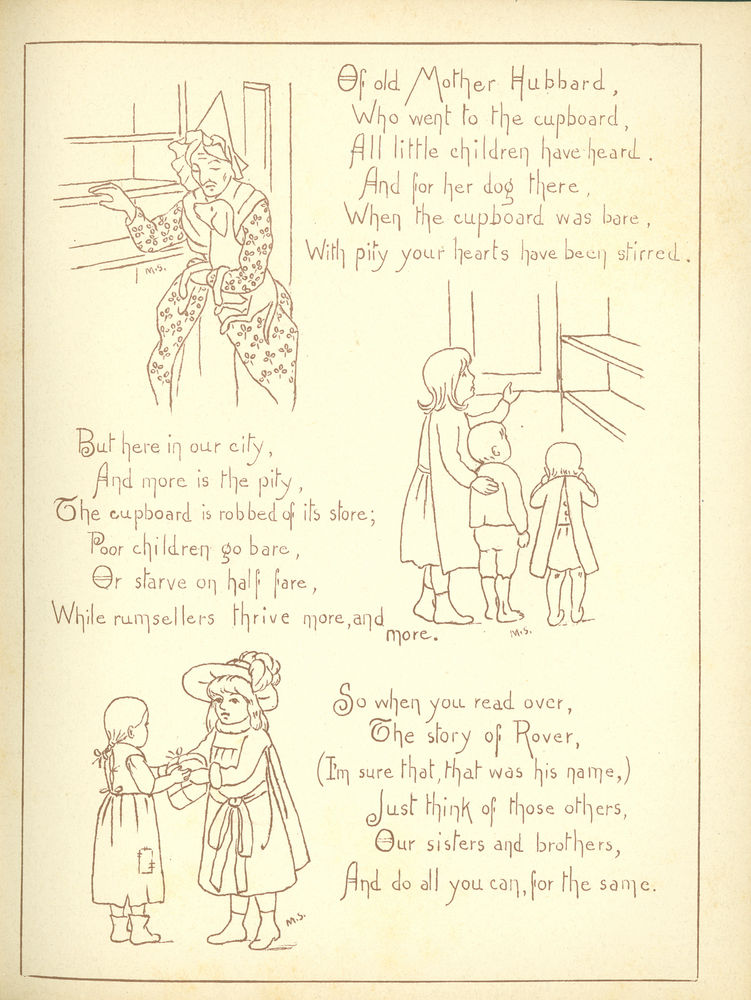 Of old Mother Hubbard,
Who went to the cupboard,
All little children have heard.
And for her dog there,
When the cupboard was bare,
With pity your hearts have been stirred.
M.S.
But here in our city,
And more is the pity,
The cupboard is robbed of its store;
Poor children go bare,
Or starve on half fare,
While rumsellers thrive more, and
more.
M.S.
So when you read over,
The story of Rover,
(I'm sure that, that was his name,)
Just think of those others,
Our sisters and brothers,
And do all you can, for the same.
M.S.